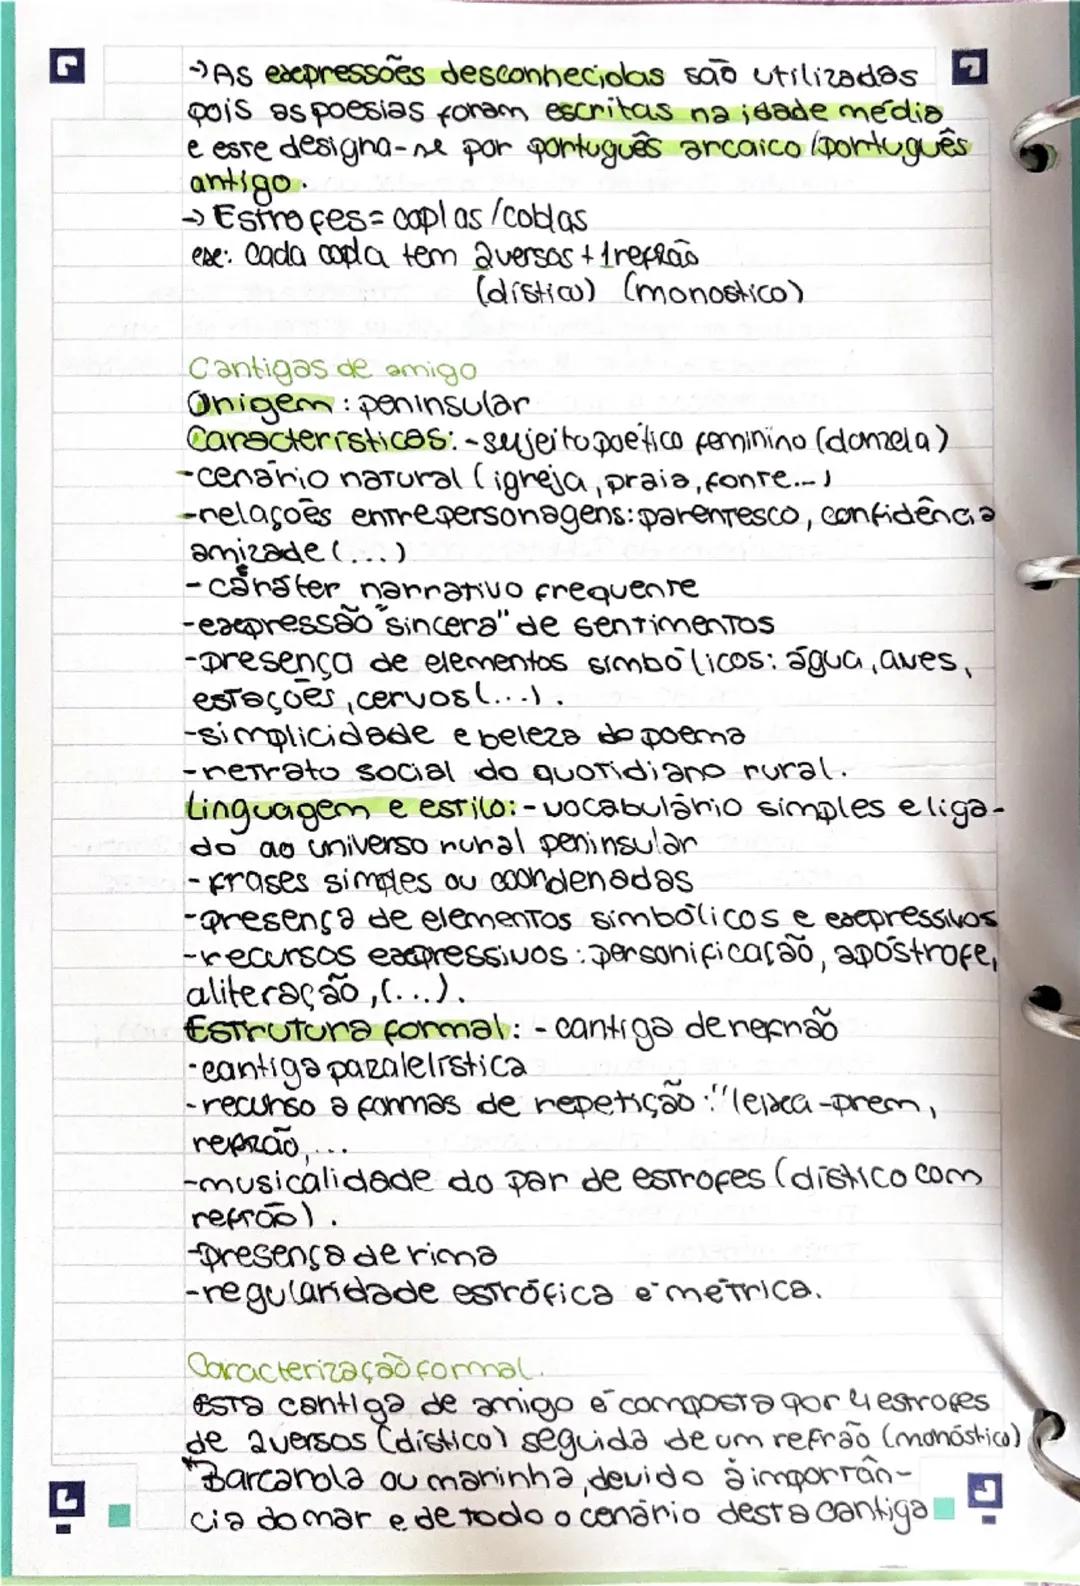 →As expressões desconhecidas são utilizadas
pois as poesias foram escritas na idade média
e este designa-se por português arcaico/português
antigo.
→ Estrofes= coplas/coblas
ex: Cada copla tem 2versos+1refrão
(dístico) (monostico)
Cantigas de amigo
Origem: peninsular
Características: -sujeito poético feminino (donzela)
-cenário natural (igreja, praia, fonte...)
-relações entre personagens: parentesco, confidência
amizade (...)
-caráter narrativo frequente
-expressão "sincera" de sentimentos
-presença de elementos simbólicos: água, aves,
estações, cervos(...).
-simplicidade e beleza do poema
-retrato social do quotidiano rural.
Linguagem e estilo: -vocabulário simples e liga-
do ao universo rural peninsular
-frases simples ou coordenadas
-presença de elementos simbólicos e expressivos
-recursos expressivos: personificação, apóstrofe,
aliteração, (...).
Estrutura formal: -cantiga de refrão
-cantiga paralelística
-recurso a formas de repetição: "leixa-prem,
refrão, ...
-musicalidade do par de estrofes (dístico com
refrão).
-presença de rima
-regularidade estrófica e métrica.
Caracterização formal.
esta cantiga de amigo é composta por 4 estrofes
de 2versos (dístico) seguida de um refrão (monóstico)
*Barcarola ou marinha, devido à importân-
cia do mar e de todo o cenário desta cantiga